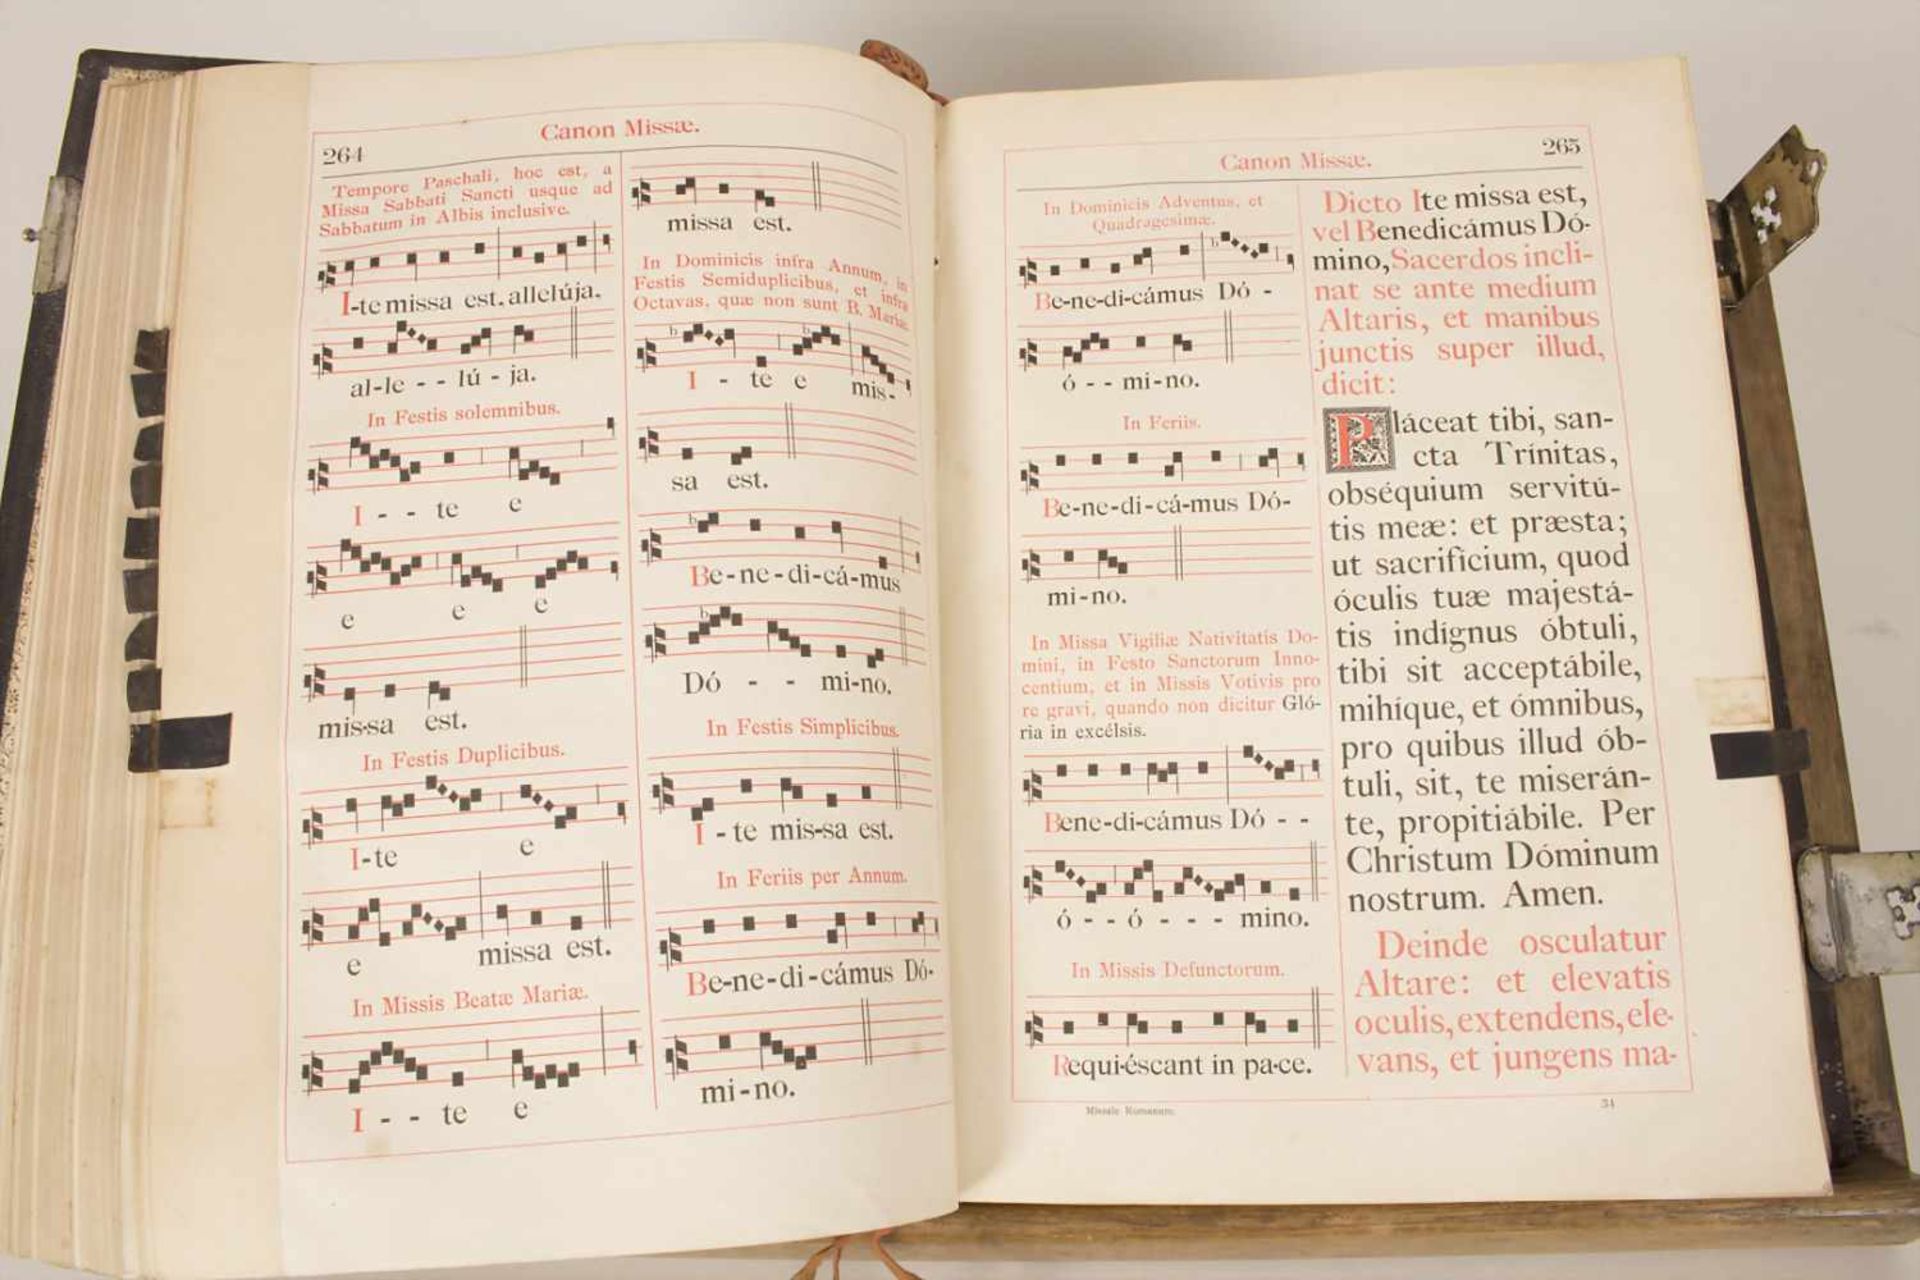 Canon Missæ.
264
Tempore Paschali, hoc est, a
Missa Sabbati Sancti usque ad
Sabbatum in Albis inclusive.
I-te missa est. allelúja.
al-le - - lú - ja.
In Festis solemnibus.
I - - te e
e e e
mis-sa est.
In Festis Duplicibus.
I-te e
e missa est.
In Missis Beatæ Mariæ.
I - - te e
missa est.
In Dominicis infra Annum, in
Festis Semiduplicibus, et infra
Octavas, quæ non sunt B. Mariæ.
I - te e mis-
sa est.
Be-ne-di-cá-mus
Dó - - mi-no.
In Festis Simplicibus.
I - te mis-sa est.
In Feriis per Annum.
Be-ne-di-cámus Dó-
mi-no.
Canon Missæ.
265
In Dominicis Adventus, et
Quadragesimæ.
Be-ne-di-cámus Dó -
ó - - mi-no.
In Feriis.
Be-ne-di-cá-mus Dó-
mi-no.
In Missa Vigiliæ Nativitatis Do-
mini, in Festo Sanctorum Inno-
centium, et in Missis Votivis pro
re gravi, quando non dicitur Gló-
ria in excélsis.
Bene-di-cámus Dó - -
ó - - ó - - - mino.
In Missis Defunctorum.
Requi-éscant in pa-ce.
Dicto Ite missa est,
vel Benedicámus Dó-
mino, Sacerdos incli-
nat se ante medium
Altaris, et manibus
junctis super illud,
dicit:
Pláceat tibi, san-
cta Trínitas,
obséquium servitú-
tis meæ: et præsta;
ut sacrifícium, quod
óculis tuæ majestá-
tis indígnus óbtuli,
tibi sit acceptábile,
mihíque, et ómnibus,
pro quibus illud ób-
tuli, sit, te miserán-
te, propitiábile. Per
Christum Dóminum
nostrum. Amen.
Deinde osculatur
Altare: et elevatis
oculis, extendens, ele-
vans, et jungens ma-
Missale Romanum.
34